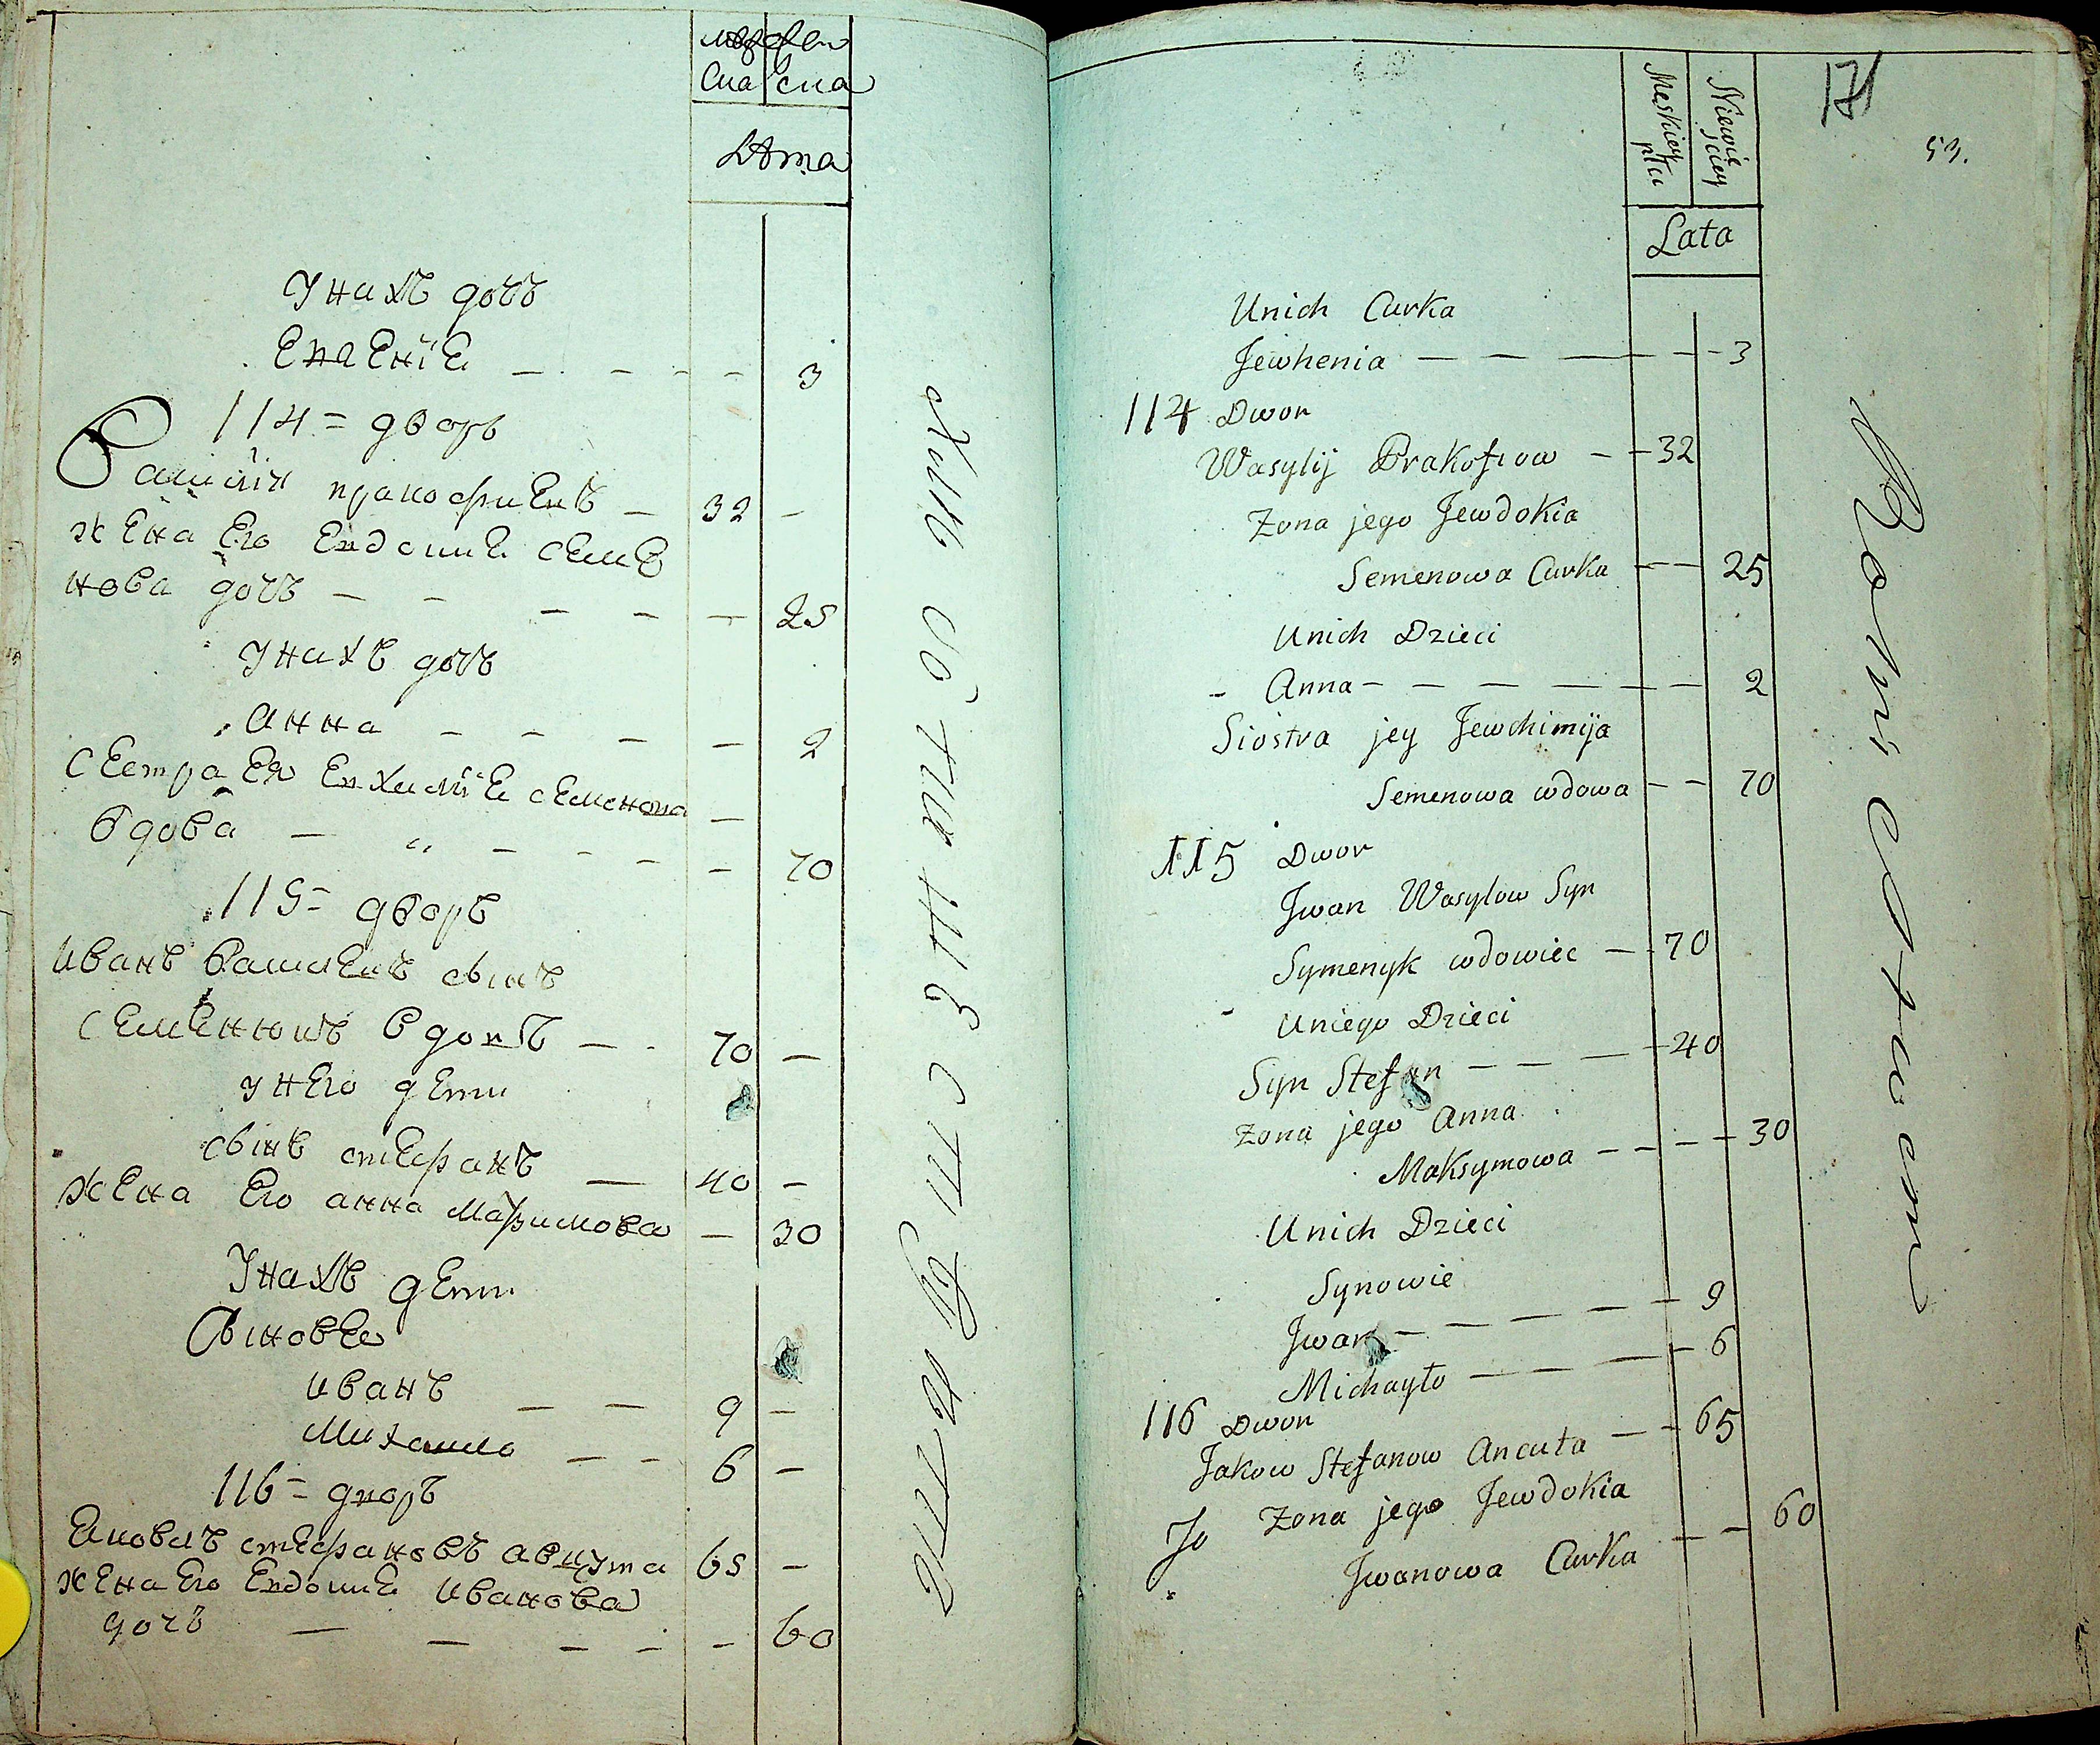 Cиа Cиа
Лѣта
У нихъ дочь
Евгенія — — — — 3
114 = дворъ
Василій Пракофиевъ — 32 —
жена его Евдокия Семе
нова дочь — — — — — 25
У нихъ дочь
Анна — — — — 2
Сестра ея Евхимия Семенова —
вдова — — — — — 70
115 = дворъ
Иванъ Василевъ сынъ
Семенюкъ вдовъ — - 70 —
у него дети
сынъ Стефанъ — 40 —
жена его Анна Мазимова — 30
У нихъ дети
Сыновья
Иванъ — — 9 —
Михаило — — 6 —
116 = дворъ
Яковъ Стефановъ Анцута 65 —
жена его Евдокия Иванова
дочь — — — — — 60
Męskiey płci
Niewieściey
Lata
171
53.
Unich Curka
Jewhenia — — — — — 3
114 Dwor
Wasylij Prakofiow — — 32
Zona jego Jewdokia
Semenowa Curka — — 25
Unich Dzieci
- Anna — — — — — — 2
Siostra jey Jewchimija
Semenowa wdowa — — 70
115 Dwor
Jwan Wasylow Syn
Symenyk wdowiec — — 70
Uniego Dzieci
Syn Stefan — — — — 40
Zona jego Anna
Maksymowa — — — — 30
Unich Dzieci
Synowie
Jwan — — — — — 9
Michayło — — — — 6
116 Dwor
Jakow Stefanow Ancuta — — 65
Zona jego Jewdokia
Jwanowa Curka — — 60